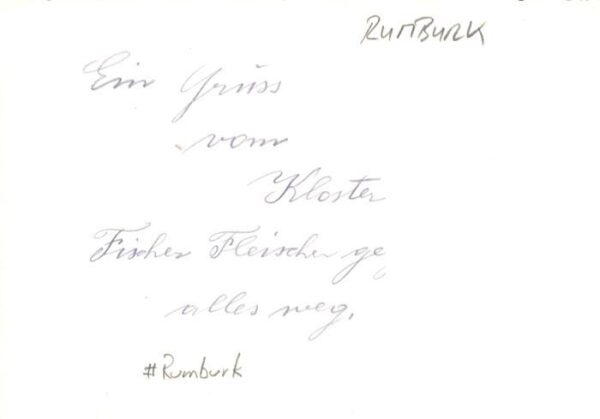 RUMBURK
Ein Gruss
vom
Kloster
Fischer Fleischer
alles weg.
#Rumburk